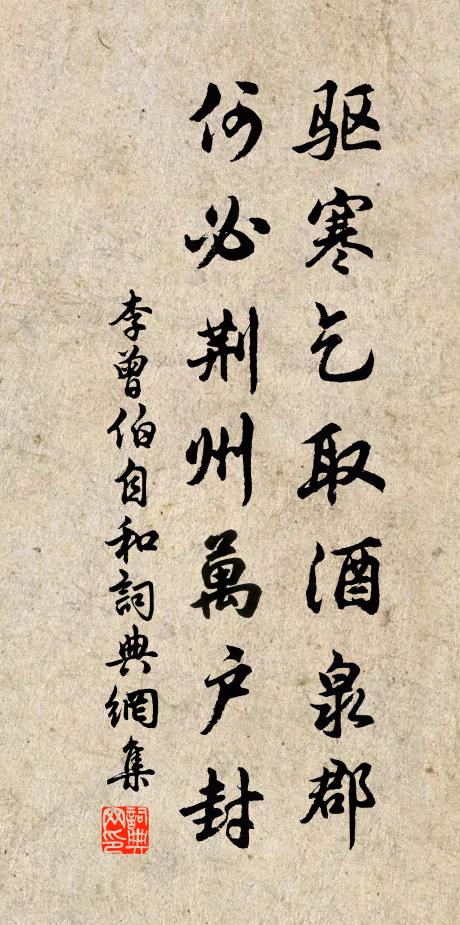 驱寒乞取酒泉郡
何必荆州萬户封
李曾伯自和詞典網集
詞典
网印